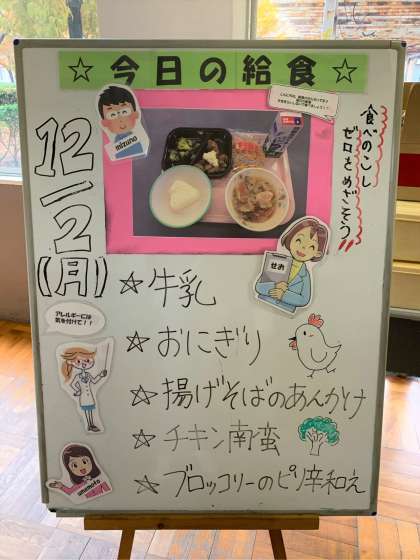 ☆今日の給食☆
mizuno
食べのこし
ゼロをめざそう!!
12/2
(月)
せお
アレルギーには
気を付けて!!
umemoto
☆牛乳
☆おにぎり
☆揚げそばのあんかけ
☆チキン南蛮
☆ブロッコリーのピリ辛和え